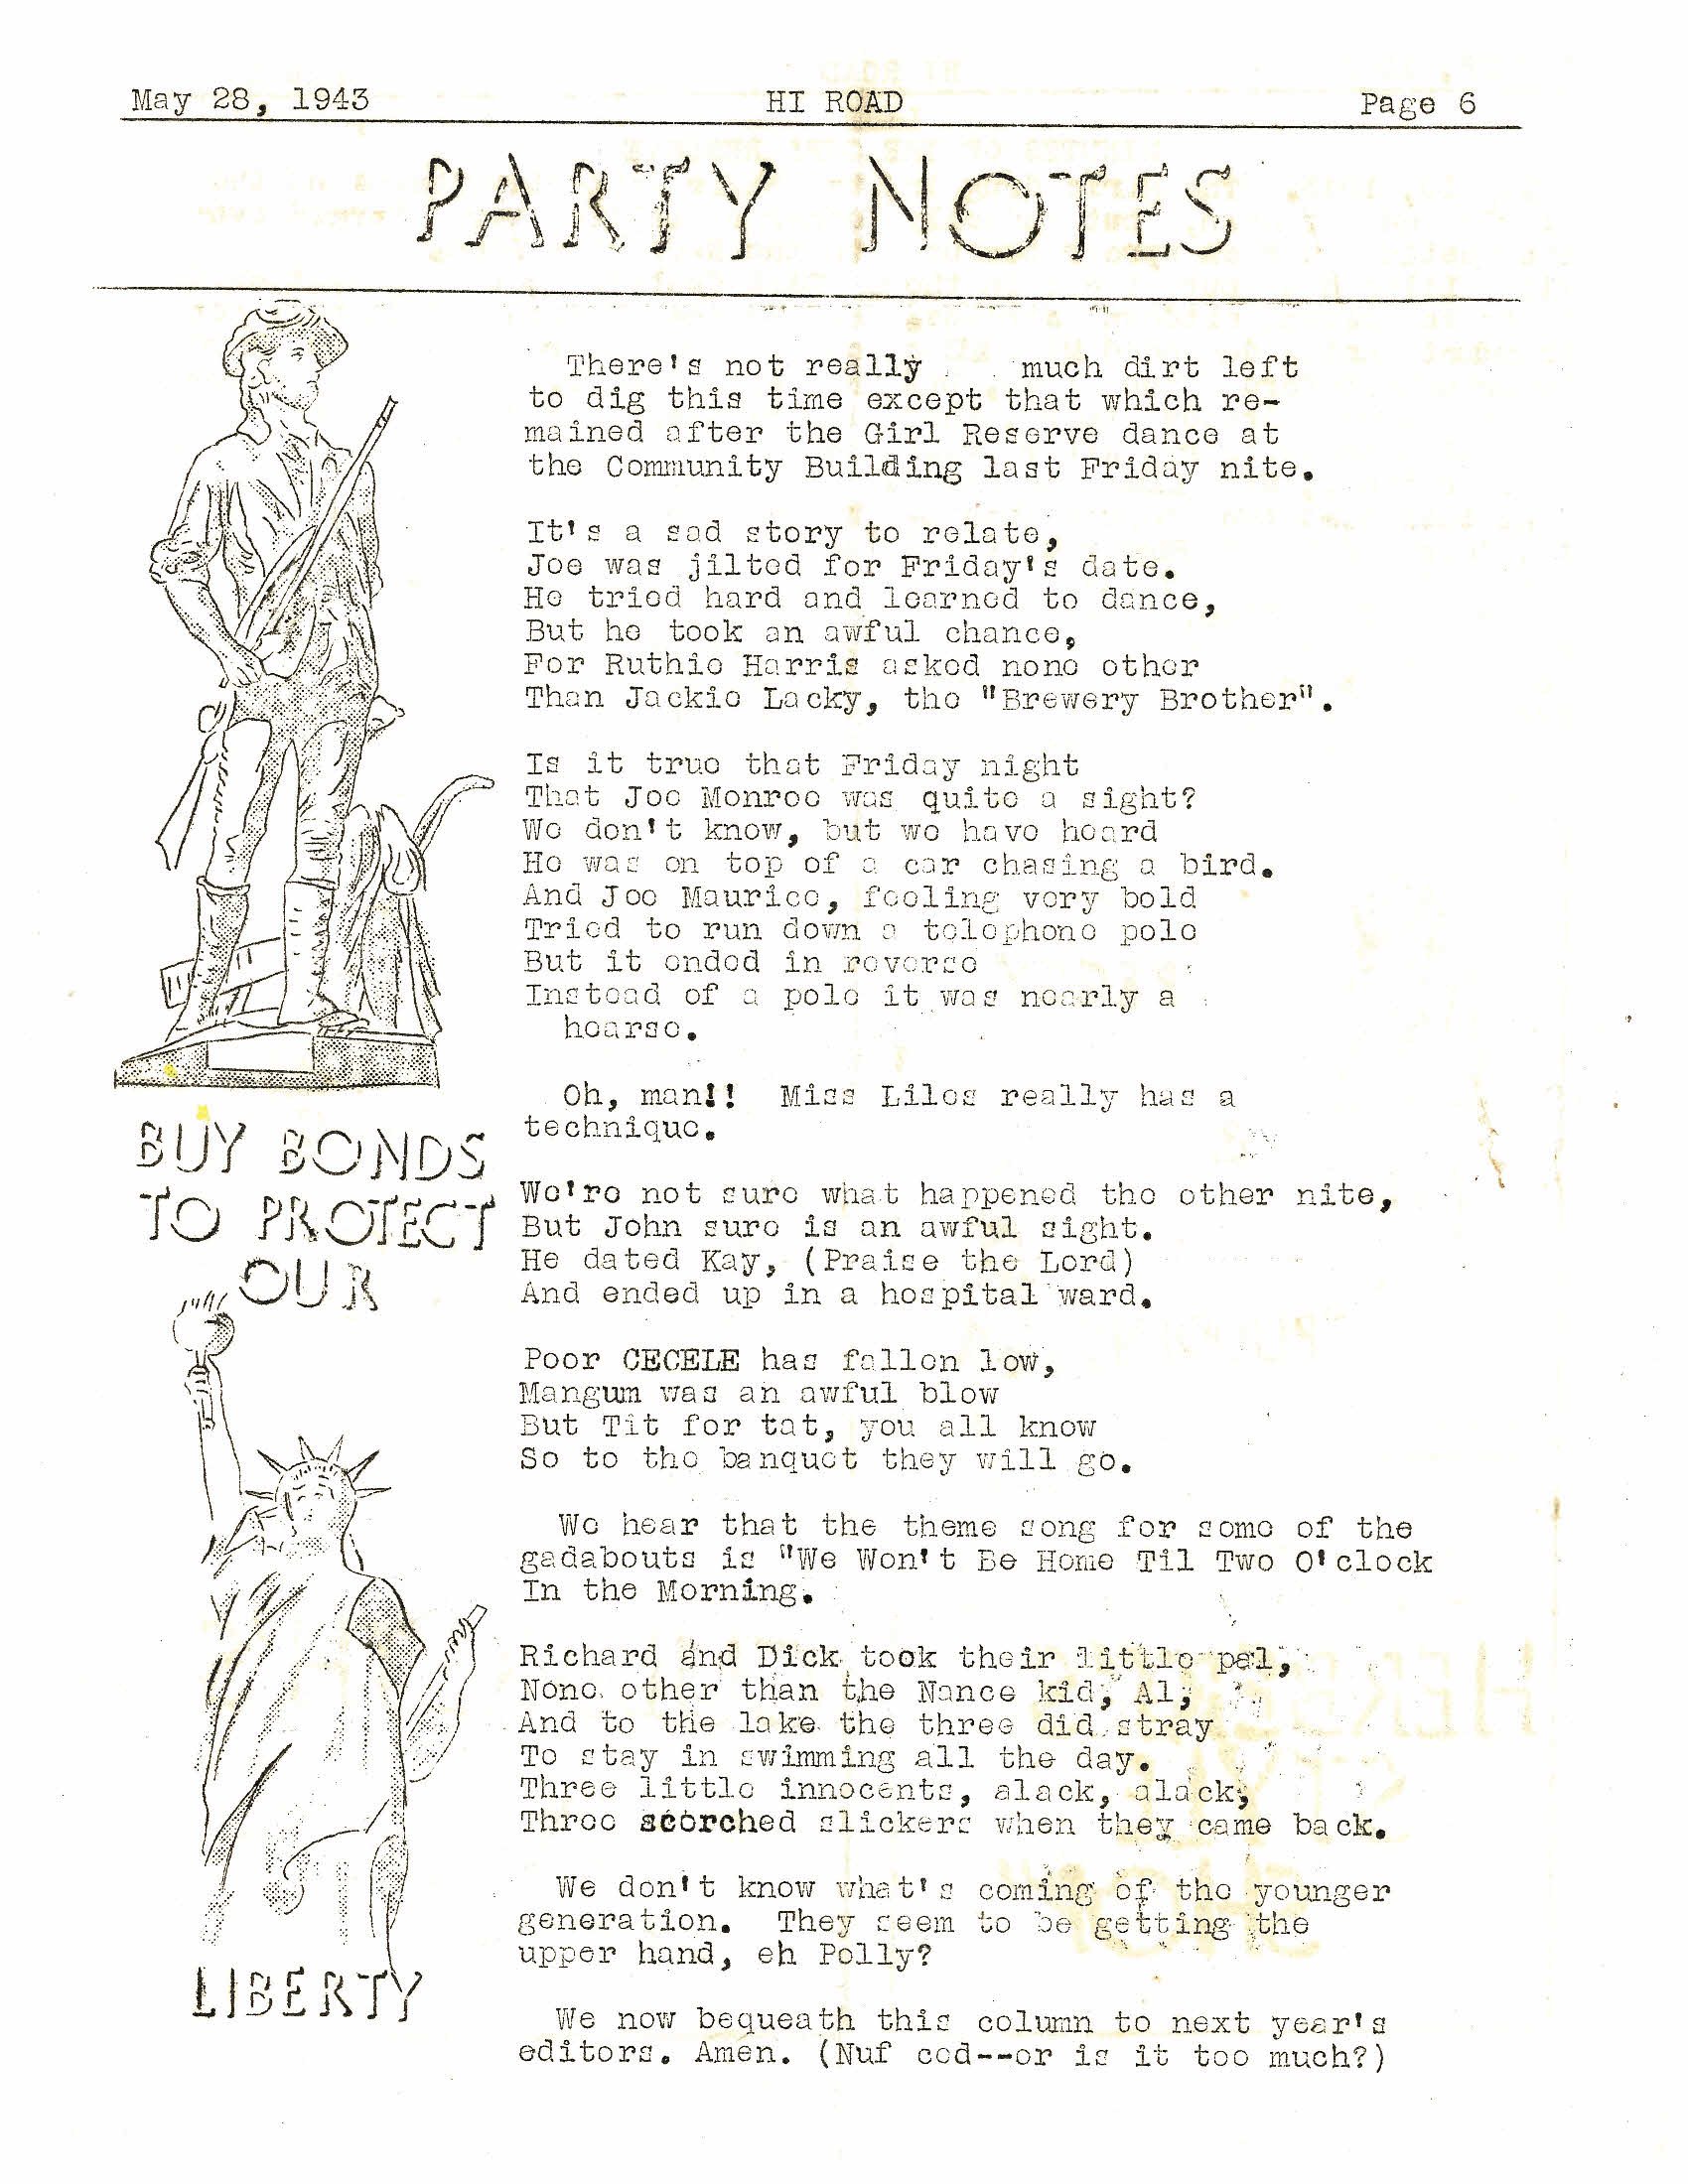 May 28, 1943 HI ROAD Page 6
PARTY NOTES
There's not really much dirt left
to dig this time except that which re-
mained after the Girl Reserve dance at
the Community Building last Friday nite.
It's a sad story to relate,
Joe was jilted for Friday's date.
He tried hard and learned to dance,
But he took an awful chance,
For Ruthie Harris asked none other
Than Jackie Lacky, the "Brewery Brother".
Is it true that Friday night
That Joe Monroe was quite a sight?
We don't know, but we have heard
He was on top of a car chasing a bird.
And Joe Maurice, feeling very bold
Tried to run down a telephone pole
But it ended in reverse
Instead of a pole it was nearly a
hearse.
Oh, man!! Miss Liles really has a
technique.
We're not sure what happened the other nite,
But John sure is an awful sight.
He dated Kay, (Praise the Lord)
And ended up in a hospital ward.
Poor CECELE has fallen low,
Mangum was an awful blow
But Tit for tat, you all know
So to the banquet they will go.
We hear that the theme song for some of the
gadabouts is "We Won't Be Home Til Two O'clock
In the Morning.
Richard and Dick took their little pal,
None other than the Nance kid, Al,
And to the lake the three did stray
To stay in swimming all the day.
Three little innocents, alack, alack,
Three scorched slickers when they came back.
We don't know what's coming of the younger
generation. They seem to be getting the
upper hand, eh Polly?
We now bequeath this column to next year's
editors. Amen. (Nuf ced--or is it too much?)
BUY BONDS
TO PROTECT
OUR
LIBERTY